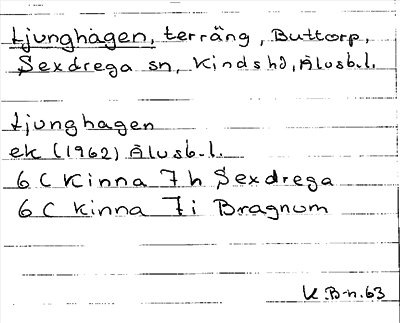 Ljunghagen, terräng, Buttorp,
Sexdrega sn, Kinds hd, Älvsb.l.
Ljunghagen
ek (1962) Älvsb.l.
6 C Kinna 7 h Sexdrega
6 C Kinna 7 i Bragnum
K.B-n.63